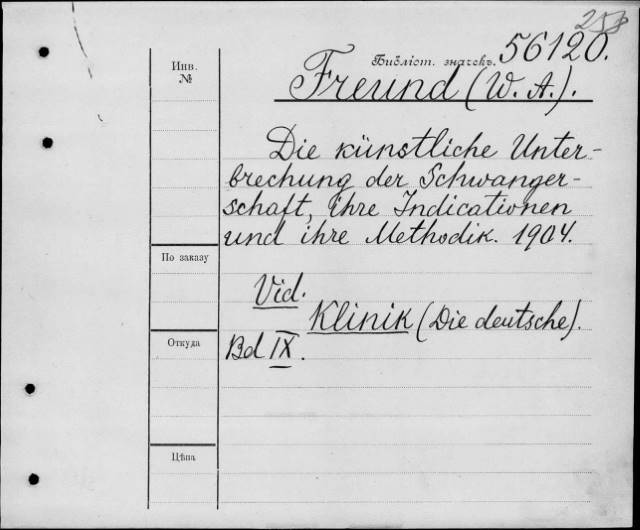 258
Библіот. значекъ 56120.
Инв.
№
Freund (W. A.).
Die künstliche Unter-
brechung der Schwanger-
schaft, ihre Indicationen
und ihre Methodik. 1904.
По заказу
Vid.
Klinik (Die deutsche).
Откуда
Bd IX.
Цѣна